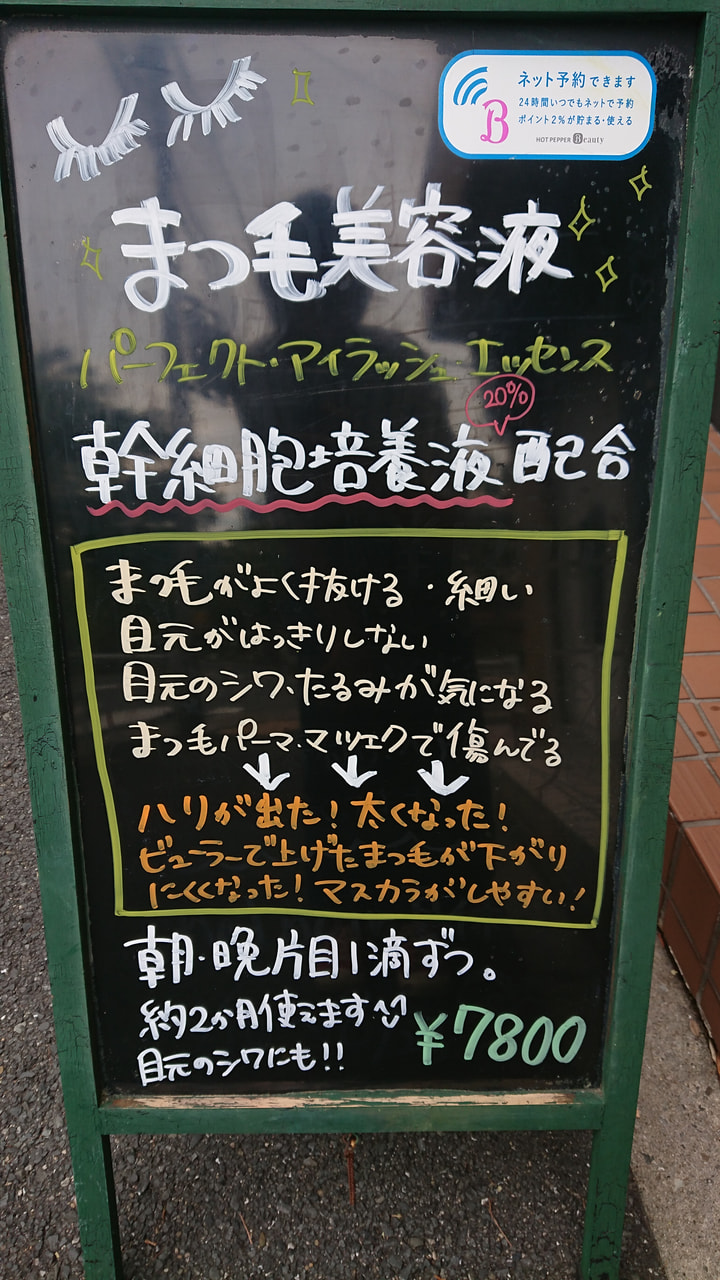 ネット予約できます
24時間いつでもネットで予約
ポイント2%が貯まる・使える
B
HOT PEPPER Beauty
まつ毛美容液
パーフェクト・アイラッシュ・エッセンス
20%
幹細胞培養液配合
まつ毛がよく抜ける・細い
目元がはっきりしない
目元のシワ、たるみが気になる
まつ毛パーマ、マツエクで傷んでる
ハリが出た!太くなった!
ビューラーで上げたまつ毛が下がり
にくくなった!マスカラがしやすい!
朝・晩片目1滴ずつ。
約2か月使えます
¥7800
目元のシワにも!!